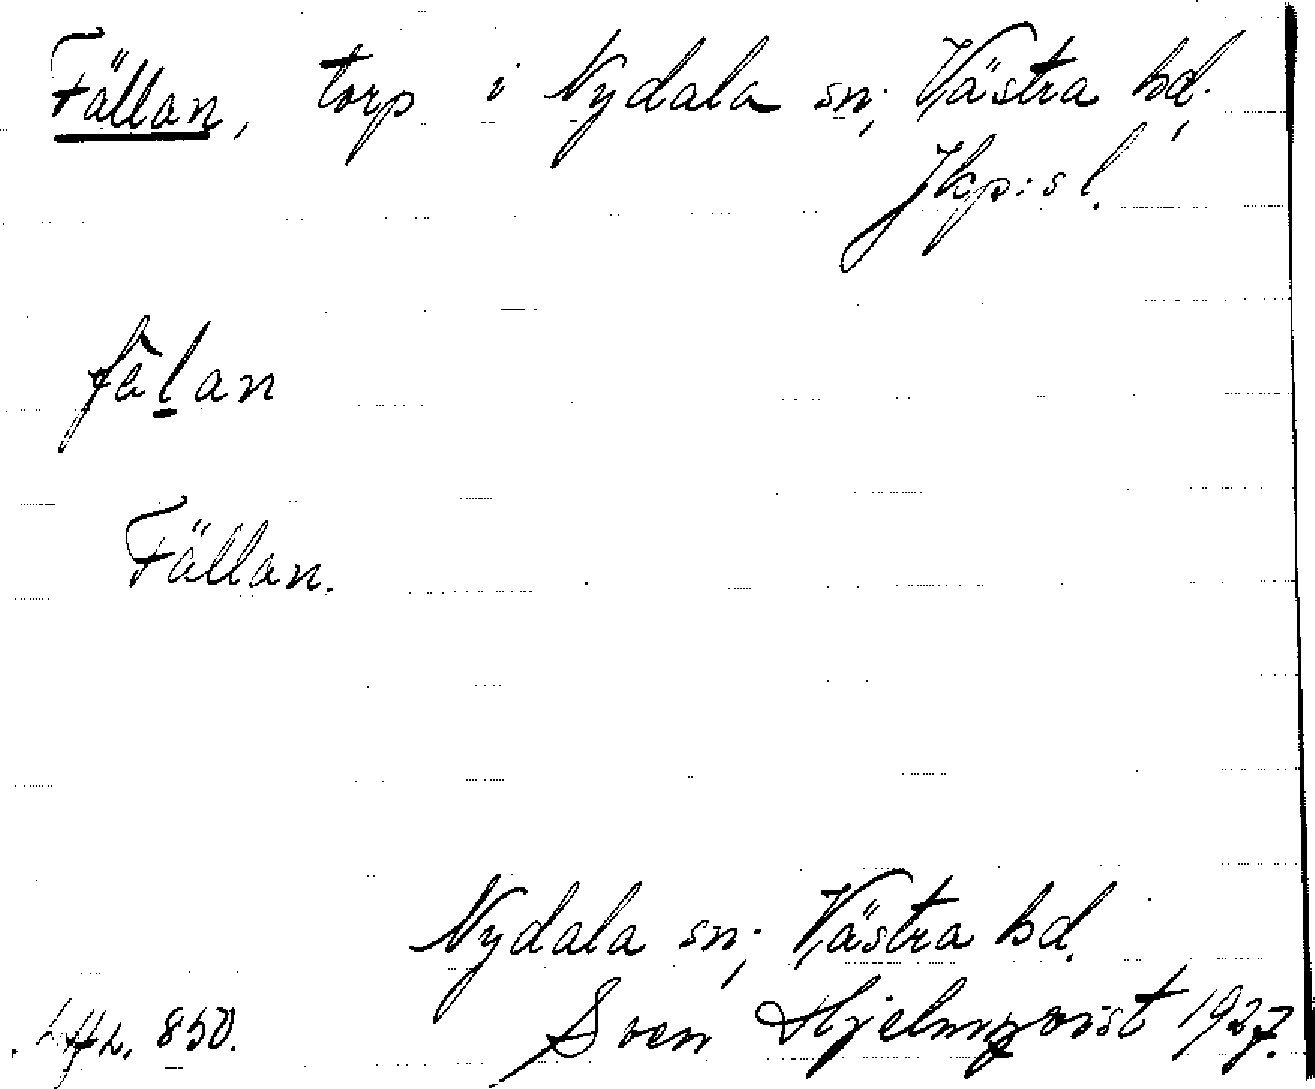 Fällan, torp i Nydala sn, Västra hd,
Jkp:s l.
fälan
Fällan.
Nydala sn, Västra hd.
850. Sven Hjelmqvist 1927.